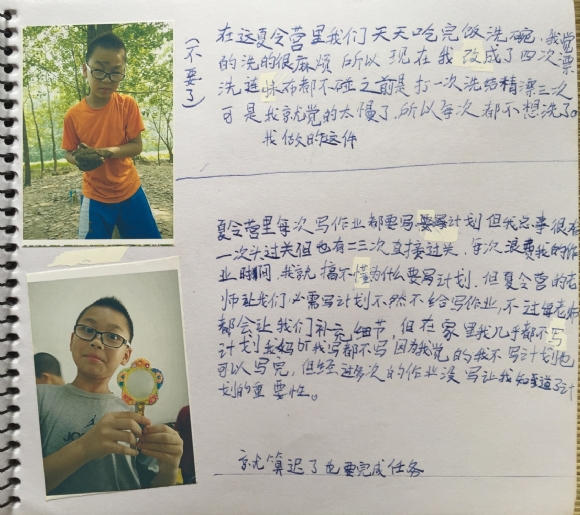 (不要了)
在这夏令营里我们天天吃完饭洗碗,我觉
的洗的很麻烦 所以 现在我 改成了四次漂
洗连抹布都不碰之前是打一次洗洁精漂三次
可是我就觉的太慢了,所以每次都不想洗了。
我做的这件
夏令营里每次写作业都要写要写计划 但我总事很
一次头过关但也有二三次直接过关,每次浪费我的作
业时间,我就搞不懂为什么要写计划,但夏令营的老
师让我们必需写计划不然不给写作业,不过每老师
都会让我们补充细节,但在家里我几乎都不写
计划我妈 我写都不写 因为我觉的我不写计划也
可以写完,但经过多次的作业没写让我知道了计
划的重要性。
就算迟了也要完成任务